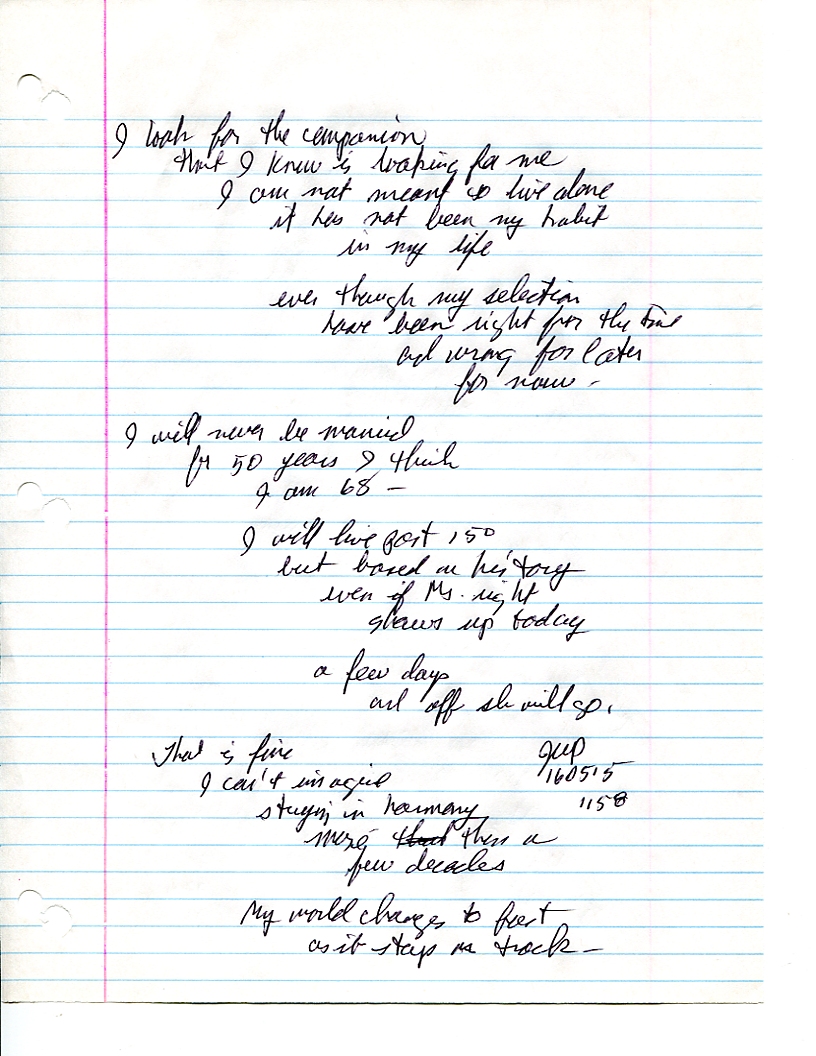 I look for the companion
that I know is looking for me
I am not meant to live alone
it has not been my habit
in my life
even though my selection
have been right for the time
and wrong for later
for now -
I will never be married
for 50 years I think
I am 68 -
I will live past 150
but based on history
even if Ms. right
shows up today
a few days
and off she will go.
That is fine
I can't imagine
staying in harmony
more than a
few decades
JWP
160515
1158
My world changes to fast
as it stays on track -